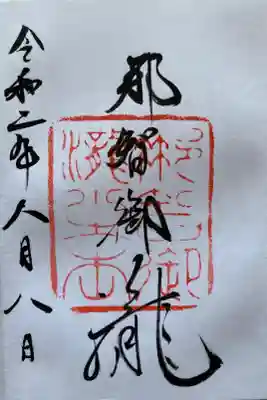 那智御瀧
令和二年八月八日